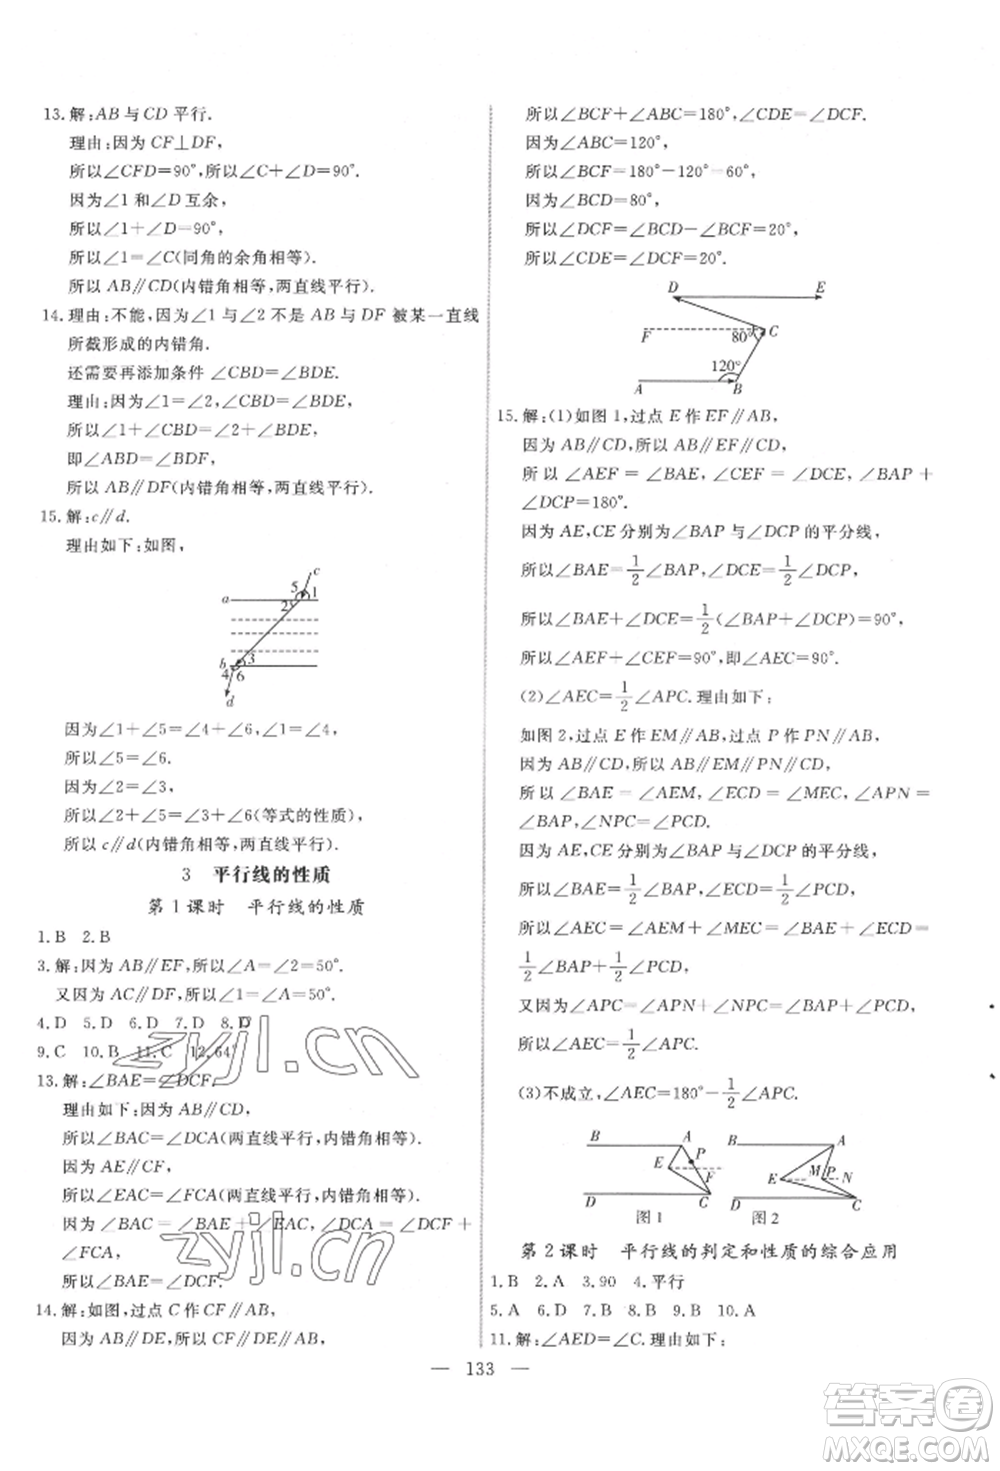 13. 解:AB 与 CD 平行.
理由:因为 CF⊥DF,
所以∠CFD=90°,所以∠C+∠D=90°.
因为∠1 和∠D 互余,
所以∠1+∠D=90°,
所以∠1=∠C(同角的余角相等).
所以 AB∥CD(内错角相等,两直线平行).
14. 理由:不能,因为∠1 与∠2 不是 AB 与 DF 被某一直线
所截形成的内错角.
还需要再添加条件 ∠CBD=∠BDE.
理由:因为∠1=∠2,∠CBD=∠BDE,
所以∠1+∠CBD=∠2+∠BDE,
即∠ABD=∠BDF,
所以 AB∥DF(内错角相等,两直线平行).
15. 解:c∥d.
理由如下:如图,
c
5
a
2
1
3
b
4
6
d
因为∠1+∠5=∠4+∠6,∠1=∠4,
所以∠5=∠6.
因为∠2=∠3,
所以∠2+∠5=∠3+∠6(等式的性质)
所以 c∥d(内错角相等,两直线平行).
3 平行线的性质
第 1 课时 平行线的性质
1. B 2. B
3. 解:因为 AB∥EF,所以∠A=∠2=50°.
又因为 AC∥DF,所以∠1=∠A=50°.
4. D 5. D 6. D 7. D 8. D
9. C 10. B 11. C 12. 64°
13. 解:∠BAE=∠DCF.
理由如下:因为 AB∥CD,
所以∠BAC=∠DCA(两直线平行,内错角相等).
因为 AE∥CF,
所以∠EAC=∠FCA(两直线平行,内错角相等).
因为 ∠BAC = ∠BAE + ∠EAC, ∠DCA = ∠DCF +
∠FCA,
所以∠BAE=∠DCF.
14. 解:如图,过点 C 作 CF∥AB,
因为 AB∥DE,所以 CF∥DE∥AB,
所以∠BCF+∠ABC=180°,∠CDE=∠DCF.
因为∠ABC=120°,
所以∠BCF=180°-120°=60°.
因为∠BCD=80°,
所以∠DCF=∠BCD-∠BCF=20°,
所以∠CDE=∠DCF=20°.
D
E
F
80°
C
120°
A
B
15. 解:(1)如图 1,过点 E 作 EF∥AB,
因为 AB∥CD,所以 AB∥EF∥CD,
所以 ∠AEF = ∠BAE, ∠CEF = ∠DCE, ∠BAP +
∠DCP=180°.
因为 AE,CE 分别为∠BAP 与∠DCP 的平分线,
所以∠BAE=1/2∠BAP,∠DCE=1/2∠DCP,
所以∠BAE+∠DCE=1/2(∠BAP+∠DCP)=90°,
所以∠AEF+∠CEF=90°,即∠AEC=90°.
(2)∠AEC=1/2∠APC.理由如下:
如图 2,过点 E 作 EM∥AB,过点 P 作 PN∥AB,
因为 AB∥CD,所以 AB∥EM∥PN∥CD,
所以 ∠BAE = ∠AEM, ∠ECD = ∠MEC, ∠APN =
∠BAP,∠NPC=∠PCD.
因为 AE,CE 分别为∠BAP 与∠DCP 的平分线,
所以∠BAE=1/2∠BAP,∠ECD=1/2∠PCD,
所以 ∠AEC = ∠AEM + ∠MEC = ∠BAE + ∠ECD =
1/2∠BAP+1/2∠PCD.
又因为∠APC=∠APN+∠NPC=∠BAP+∠PCD,
所以∠AEC=1/2∠APC.
(3)不成立,∠AEC=180°-1/2∠APC.
B
A
E
P
F
D
C
图 1
B
A
E
M
P
N
D
C
图 2
第 2 课时 平行线的判定和性质的综合应用
1. B 2. A 3. 90 4. 平行
5. A 6. D 7. D 8. B 9. B 10. A
11. 解:∠AED=∠C.理由如下:
— 133 —
zyjl.cn
zyjl.cn
答案圈
MXQE.COM